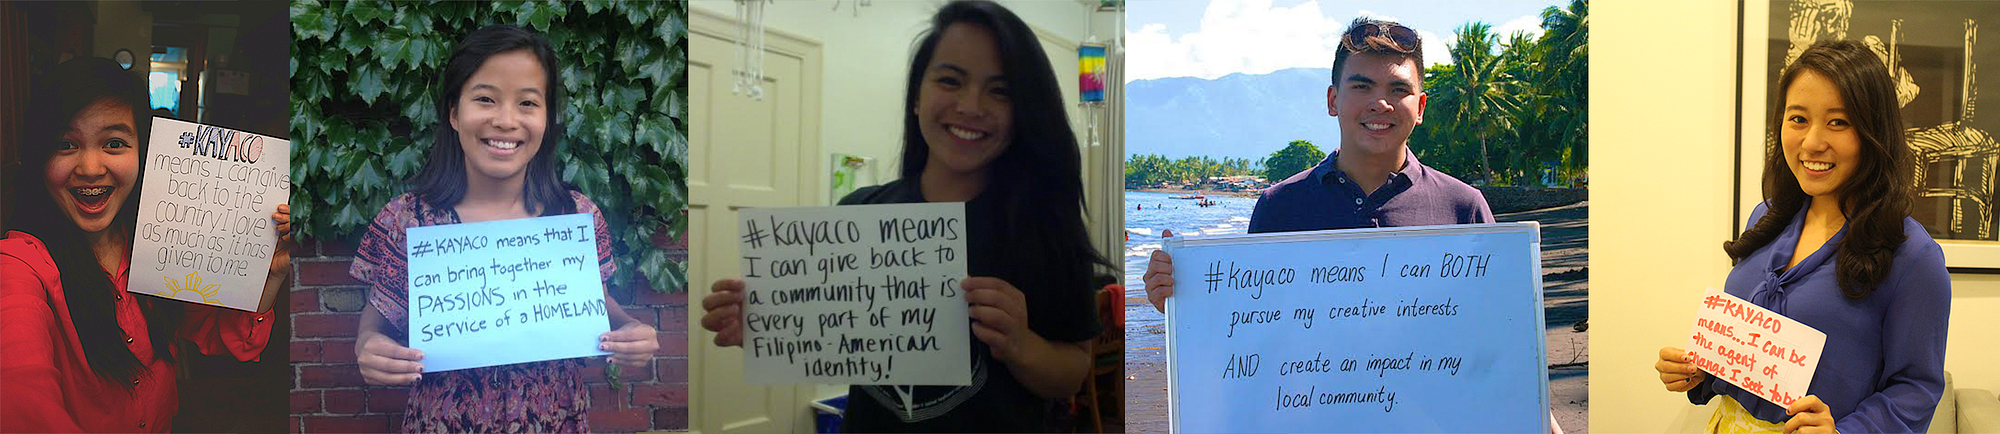 #KAYACO
means I can give
back to the
country I love
as much as it has
given to me.
#KAYACO means that I
can bring together my
PASSIONS in the
service of a HOMELAND
#kayaco means
I can give back to
a community that is
every part of my
Filipino-American
identity!
#kayaco means I can BOTH
pursue my creative interests
AND create an impact in my
local community.
#KAYACO
means... I can be
the agent of
change I seek to be!